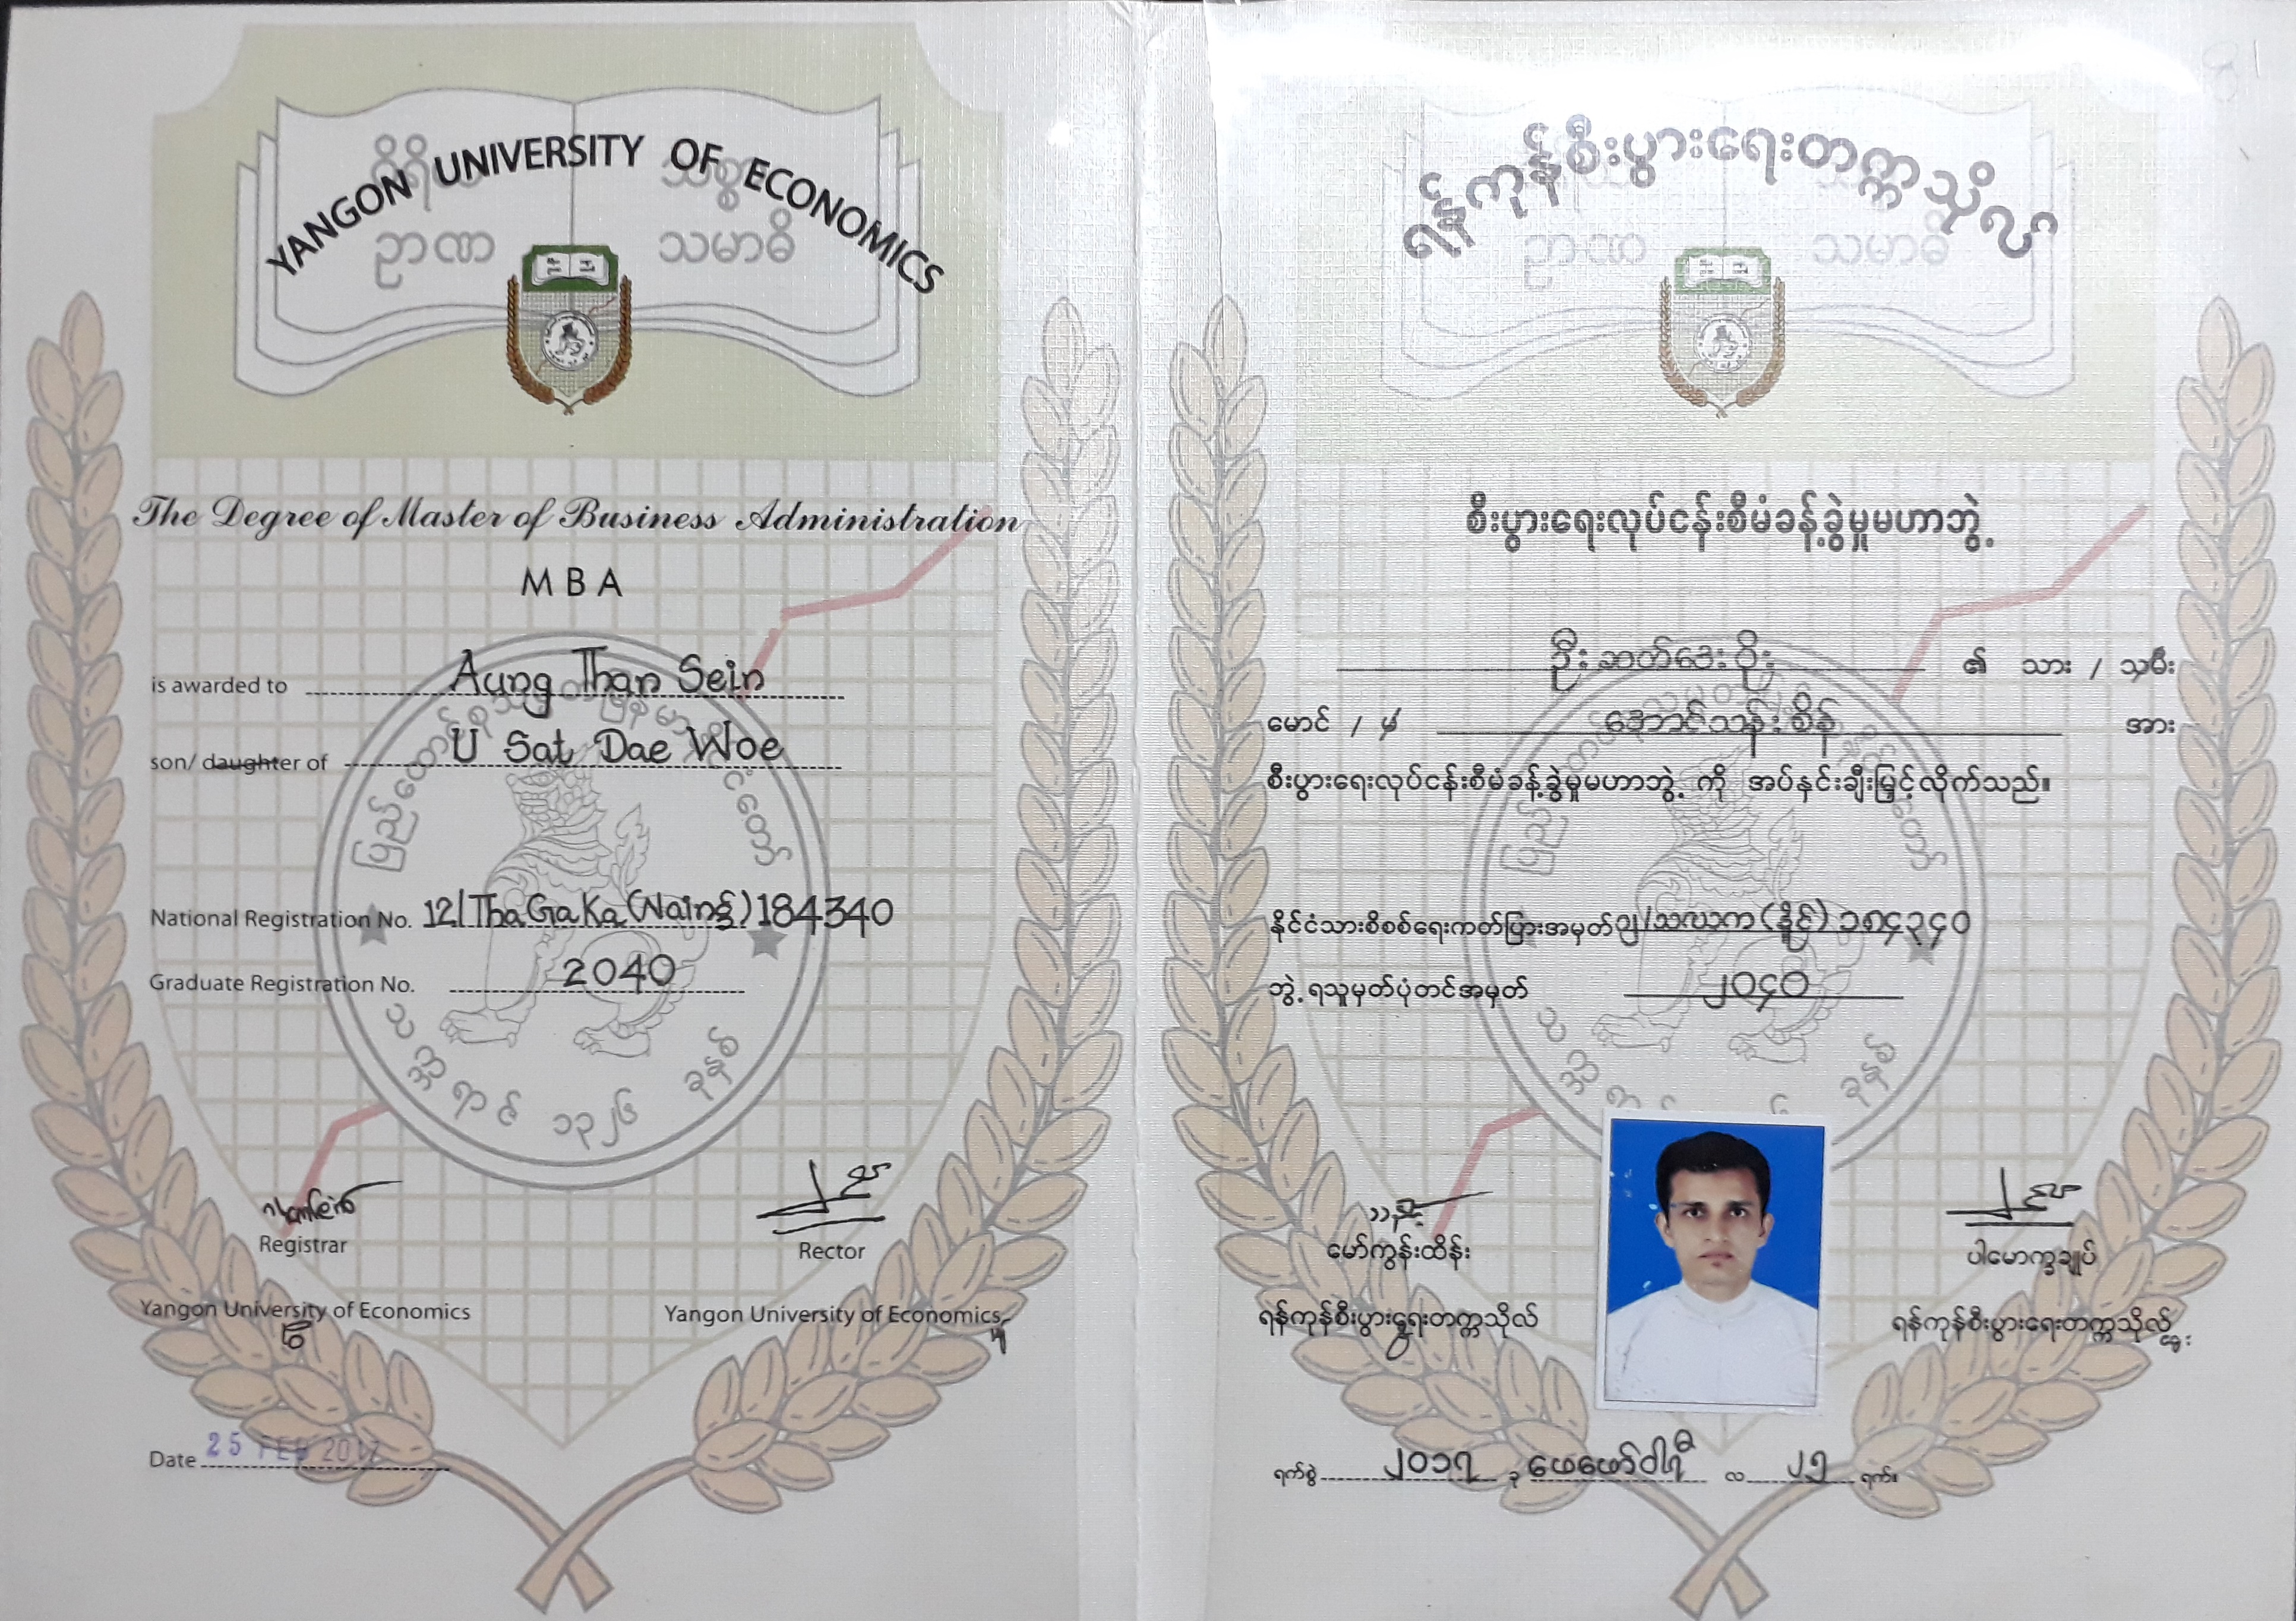 YANGON UNIVERSITY OF ECONOMICS
ဉာဏ သမာဓိ
The Degree of Master of Business Administration
MBA
is awarded to Aung Than Sein
son/ daughter of U Sat Dae Woe
National Registration No. 12/ThaGaKa(Naing)184340
Graduate Registration No. 2040
တက္ကရာဇ် ၁၃၂၆ ခုနှစ်
Registrar
Rector
Yangon University of Economics
Yangon University of Economics
Date 25 FEB 2017
ရန်ကုန်စီးပွားရေးတက္ကသိုလ်
ဉာဏ သမာဓိ
စီးပွားရေးလုပ်ငန်းစီမံခန့်ခွဲမှုမဟာဘွဲ့
ဦးဆတ်ဒေးဝိုး ၏ သား / သမီး
မောင် / မ အောင်သန်းစိန် အား
စီးပွားရေးလုပ်ငန်းစီမံခန့်ခွဲမှုမဟာဘွဲ့ ကို အပ်နှင်းချီးမြှင့်လိုက်သည်။
နိုင်ငံသားစိစစ်ရေးကတ်ပြားအမှတ် ၁၂/သဃက(နိုင်)၁၈၄၃၄၀
ဘွဲ့ရသူမှတ်ပုံတင်အမှတ် ၂၀၄၀
မော်ကွန်းထိန်း
ပါမောက္ခချုပ်
ရန်ကုန်စီးပွားရေးတက္ကသိုလ်
ရန်ကုန်စီးပွားရေးတက္ကသိုလ်
ရက်စွဲ ၂၀၁၇ ခု ဖေဖော်ဝါရီ လ ၂၅ ရက်။